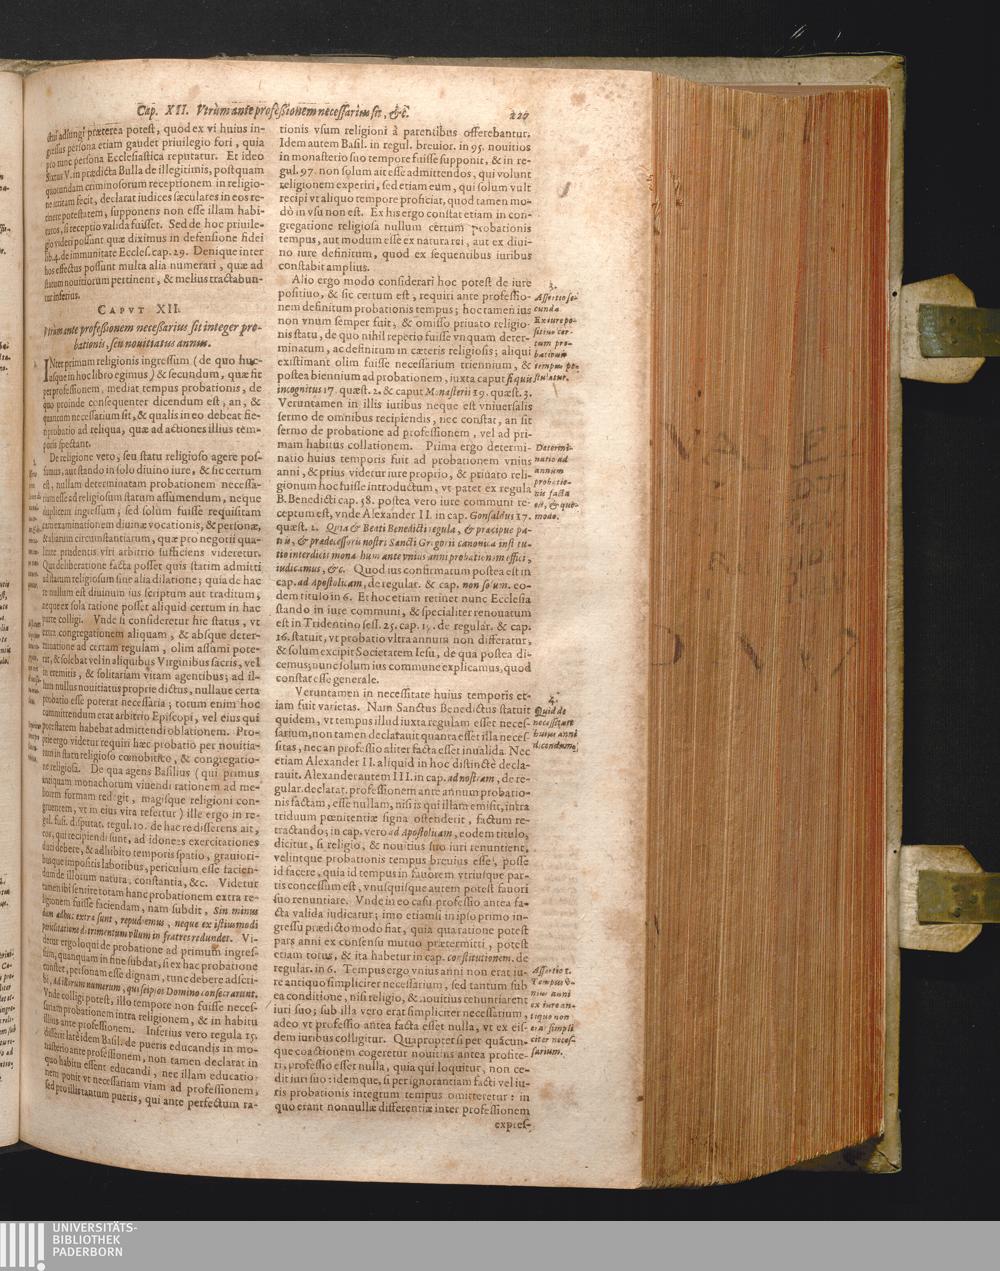 Cap. XII. Vtrùm ante professionem necessarius sit, &c.
227
adiungi præterea potest, quòd ex vi huius in-
gressus persona etiam gaudet priuilegio fori, quia
pro tunc persona Ecclesiastica reputatur. Et ideo
Sixtus V. in prædicta Bulla de illegitimis, postquam
quorundam criminosorum receptionem in religio-
ne irritam fecit, declarat iudices sæculares in eos re-
tinere potestatem, supponens non esse illam habi-
turos, si receptio valida fuisset. Sed de hoc priuile-
gio videri possunt quæ diximus in defensione fidei
lib. 4. de immunitate Eccles. cap. 29. Denique inter
hos effectus possunt multa alia numerari, quæ ad
statum nouitiorum pertinent, & melius tractabun-
tur inferius.
CAPVT XII.
Vtrùm ante professionem necessarius sit integer pro-
bationis, seu nouitiatus annus.
INter primum religionis ingressum (de quo huc-
usque in hoc libro egimus) & secundum, quæ fit
per professionem, mediat tempus probationis, de
quo proinde consequenter dicendum est, an, &
quantum necessarium sit, & qualis in eo debeat fie-
ri probatio ad reliqua, quæ ad actiones illius tem-
poris spectant.
De religione vero, seu statu religioso agere pos-
sumus, aut stando in solo diuino iure, & sic certum
est, nullam determinatam probationem necessa-
riam esse ad religiosum statum assumendum, neque
duplicem ingressum; sed solum fuisse requisitam
examinationem diuinæ vocationis, & personæ,
& aliarum circunstantiarum, quæ pro negotij qua-
litate prudentis viri arbitrio sufficiens videretur.
Qui deliberatione facta posset quis statim admitti
ad statum religiosum sine alia dilatione; quia de hac
re nullum est diuinum ius scriptum aut traditum,
neque ex sola ratione posset aliquid certum in hac
parte colligi. Vnde si consideretur hic status, vt
extra congregationem aliquam, & absque deter-
minatione ad certam regulam, olim assumi pote-
rat, & solebat vel in aliquibus Virginibus sacris, vel
in eremitis, & solitariam vitam agentibus; ad il-
lum nullus nouitiatus proprie dictus, nullaue certa
probatio esse poterat necessaria; totum enim hoc
committendum erat arbitrio Episcopi, vel eius qui
potestatem habebat admittendi oblationem. Pro-
prie ergo videtur requiri hæc probatio per nouitia-
tum in statu religioso cœnobitico, & congregatio-
ne religiosa. De qua agens Basilius (qui primus
antiquam monachorum viuendi rationem ad me-
liorem formam redegit, magisque religioni con-
gruentem, vt in eius vita refertur) ille ergo in re-
gul. fusi. disputat. regul. 10. de hac re disserens ait,
eos, qui recipiendi sunt, ad idoneas exercitationes
duci debere, & adhibito temporis spatio, grauiori-
busque impositis laboribus, periculum esse facien-
dum de illorum natura, constantia, &c. Videtur
tamen ibi sentire totam hanc probationem extra re-
ligionem fuisse faciendam, nam subdit, Sin minus
dum adhuc extra sunt, repudiemus, neque ex istiusmodi
periclitatione detrimentum vllum in fratres redundet. Vi-
detur ergo loqui de probatione ad primum ingres-
sum, quanquam in fine subdat, si ex hac probatione
constet, personam esse dignam, tunc debere adscri-
bi, Ad illorum numerum, qui seipsos Domino consecrarunt.
Vnde colligi potest, illo tempore non fuisse neces-
sariam probationem intra religionem, & in habitu
illius ante professionem. Inferius vero regula 15.
disserit late idem Basil. de pueris educandis in mo-
nasterio ante professionem, non tamen declarat in
quo habitu essent educandi, nec illam educatio-
nem ponit vt necessariam viam ad professionem,
sed pro illis tantum pueris, qui ante perfectum ra-
tionis vsum religioni à parentibus offerebantur.
Idem autem Basil. in regul. breuior. in 95. nouitios
in monasterio suo tempore fuisse supponit, & in re-
gul. 97. non solum ait esse admittendos, qui volunt
religionem experiri, sed etiam eum, qui solum vult
recipi vt aliquo tempore proficiat, quod tamen mo-
dò in vsu non est. Ex his ergo constat etiam in con-
gregatione religiosa nullum certum probationis
tempus, aut modum esse ex natura rei, aut ex diui-
no iure definitum, quod ex sequentibus iuribus
constabit amplius.
Alio ergo modo considerari hoc potest de iure
positiuo, & sic certum est, requiri ante professio-
nem definitum probationis tempus; hoc tamen ius
non vnum semper fuit; & omisso priuato religio-
nis statu, de quo nihil reperio fuisse vnquam deter-
minatum, ac definitum in cæteris religiosis; aliqui
existimant olim fuisse necessarium triennium, &
postea biennium ad probationem, iuxta caput si quis
incognitus 17. quæst. 2. & caput Monasterii 19. quæst. 3.
Veruntamen in illis iuribus neque est vniuersalis
sermo de omnibus recipiendis, nec constat, an sit
sermo de probatione ad professionem, vel ad pri-
mam habitus collationem. Prima ergo determi-
natio huius temporis fuit ad probationem vnius
anni, & prius videtur iure proprio, & priuato reli-
gionum hoc fuisse introductum, vt patet ex regula
B. Benedicti cap. 58. postea vero iure communi re-
ceptum est, vnde Alexander II. in cap. Gonsaldus 17.
quæst. 2. Quia & Beati Benedicti regula, & præcipue pa-
tris, & prædecessoris nostri Sancti Gregorii canonica insti tu-
tio interdicit monachum ante vnius anni probationem effici,
iudicamus, &c. Quod ius confirmatum postea est in
cap. ad Apostolicam, de regular. & cap. non solum. eo-
dem titulo in 6. Et hoc etiam retinet nunc Ecclesia
stando in iure communi, & specialiter renouatum
est in Tridentino sess. 25. cap. 15. de regular. & cap.
16. statuit, vt probatio vltra annum non differatur,
& solum excipit Societatem Iesu, de qua postea di-
cemus; nunc solum ius commune explicamus, quod
constat esse generale.
Veruntamen in necessitate huius temporis et-
iam fuit varietas. Nam Sanctus Benedictus statuit
quidem, vt tempus illud iuxta regulam esset neces-
sarium, non tamen declarauit quanta esset illa neces-
sitas, nec an professio aliter facta esset inualida. Nec
etiam Alexander II. aliquid in hoc distinctè decla-
rauit. Alexander autem III. in cap. ad nostram, de re-
gular. declarat. professionem ante annum probatio-
nis factam, esse nullam, nisi is qui illam emisit, intra
triduum pœnitentiæ signa ostenderit, factum re-
tractando; in cap. vero ad Apostolicam, eodem titulo,
dicitur, si religio, & nouitius suo iuri renuntient,
velintque probationis tempus breuius esse, posse
id facere, quia id tempus in fauorem vtriusque par-
tis concessum est, vnusquisque autem potest fauori
suo renuntiare. Vnde in eo casu professio antea fa-
cta valida iudicatur; imo etiamsi in ipso primo in-
gressu prædicto modo fiat, quia qua ratione potest
pars anni ex consensu mutuo prætermitti, potest
etiam totus, & ita habetur in cap. constitutionem. de
regular. in 6. Tempus ergo vnius anni non erat iu-
re antiquo simpliciter necessarium, sed tantum sub
ea conditione, nisi religio, & nouitius renuntiarent
iuri suo; sub illa vero erat simpliciter necessarium,
adeo vt professio antea facta esset nulla, vt ex eis-
dem iuribus colligitur. Quapropter si per quamcun-
que coactionem cogeretur nouitius antea profite-
ri, professio esset nulla, quia qui loquitur, non ce-
dit iuri suo: idemque, si per ignorantiam facti vel iu-
ris probationis integrum tempus omitteretur: in
quo erant nonnullæ differentiæ inter professionem
expres-
3.
Assertio se-
cunda
Ex iure po-
sitiuo cer-
tum pro-
bationis
tempus po-
stulatur.
Determi-
natio ad
annum
probatio-
nis facta
est, & quo-
modo.
4.
Quid de
necessitate
huius anni
dicendum.
Assertio 1.
Tempus v-
nius anni
ex iure an-
tiquo non
erat simpli
citer neces-
sarium.
UNIVERSITÄTS-
BIBLIOTHEK
PADERBORN